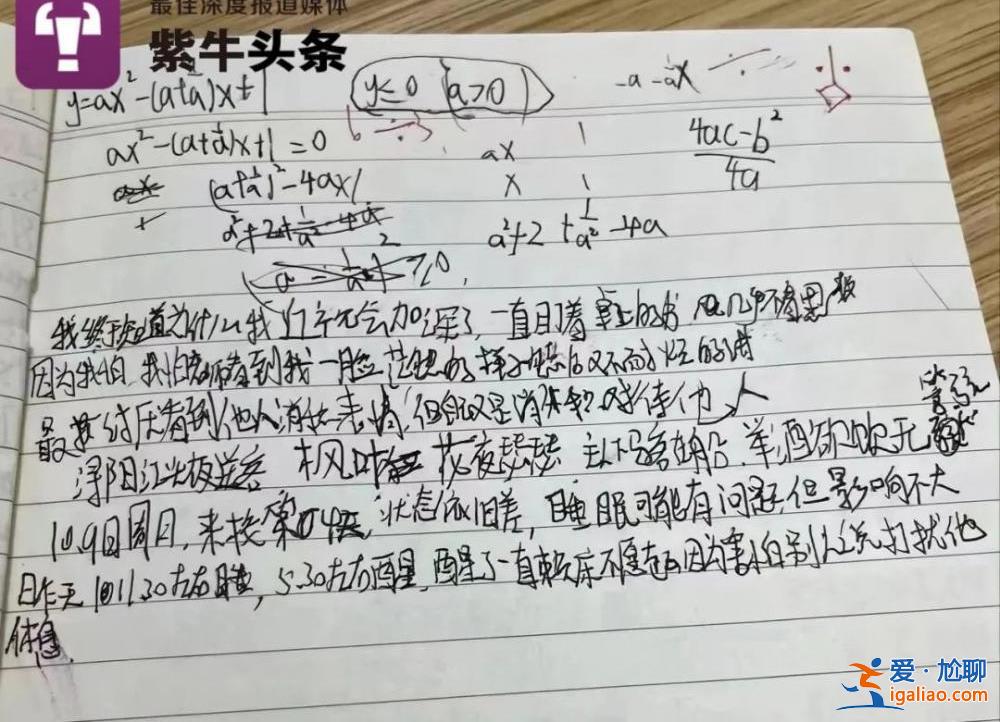 最佳深度报道媒体
紫牛头条
y=ax²-(a+1/a)x+1
y≤0 (a>0)
-a -1/a x
ax²-(a+1/a)x+1=0
ax 1
x 1
(4ac-b²)/4a
(a+1/a)²-4ax1
a²+2+1/a²-4a
a²+2+1/a²-4a
(a-1/a)²≥0
我终于知道为什么我 会加深了,一直盯着桌上的书
因为我怕,我怕老师看到我一脸茫然的样子 又不耐烦的
最讨厌看到他人消极表情,但自己又是消极 对待他人
浔阳江头夜送客 枫叶荻花夜瑟瑟 主人下马客在船 举酒欲饮无管弦
10.9日周日,来校第04天,状态依旧差,睡眠可能有问题,但影响不大
昨天 11.30左右睡,5.30左右醒,醒了一直赖床不愿起因为害怕别人说打扰他
休息.
爱·尬聊
igaliao.com